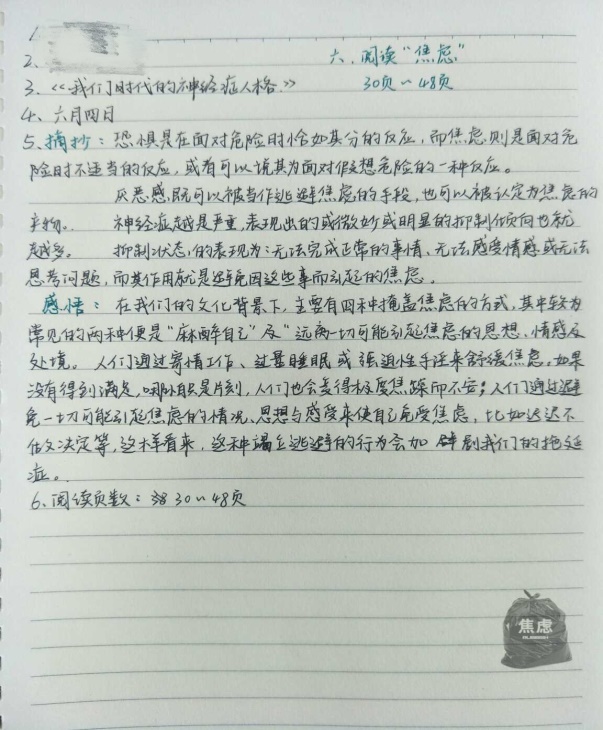 1.
2.
六、阅读“焦虑”
3.《我们时代的神经症人格》
30页~48页
4、六月四日
5、摘抄：恐惧是在面对危险时恰如其分的反应，而焦虑则是面对危
险时不适当的反应，或者可以说其为面对假想危险的一种反应。
厌恶感既可以被当作逃避焦虑的手段，也可以被认定为焦虑的
产物。 神经症越是严重，表现出的或微妙或明显的抑制倾向也就
越多。 抑制状态的表现为：无法完成正常的事情、无法感受情感或无法
思考问题，而其作用就是避免因这些事而引起的焦虑。
感悟：在我们的文化背景下，主要有四种掩盖焦虑的方式，其中较为
常见的两种便是“麻醉自己”及“远离一切可能引起焦虑的思想、情感及
处境。人们通过寄情工作、过量睡眠或强迫性手淫来舒缓焦虑。如果
没有得到满足，哪怕只是片刻，人们也会变得极度焦躁而不安；人们通过避
免一切可能引起焦虑的情况、思想与感受来使自己免受焦虑，比如迟迟不
做决定等，这样看来，这种竭力逃避的行为会加剧我们的拖延
症。
6、阅读页数：30~48页
焦虑